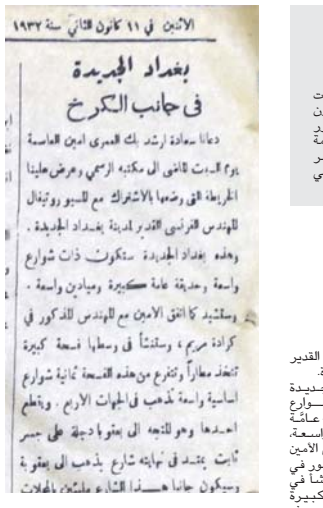 الاثنين في ١١ كانون الثاني سنة ١٩٣٢
بغداد الجديدة
في جانب الكرخ
دعانا سعادة ارشد بك العمري امين العاصمة
يوم السبت الماضي الى مكتبه الرسمي وعرض علينا
الخريطة التي وضعها بالاشتراك مع المسيو
المهندس الفرنسي القدير لمدينة بغداد الجديدة .
وهذه بغداد الجديدة ستكون ذات شوارع
واسعة وحديقة عامة كبيرة وميادين واسعة .
وستشيد كما اتفق الأمين مع المهندس المذكور في
كرادة مريم ، وستنشأ في وسطها فسحة كبيرة
تتخذ مطاراً وتتفرع من هذه الفسحة ثمانية شوارع
اساسية واسعة تذهب في الجهات الاربع . ويقطع
احدها وهو المتجه الى بعقوبا دجلة على جسر
ثابت يمتد في نهايته شارع يذهب الى بعقوبة
وسيكون جانبا هذا الشارع
القدير
ة.
جديدة
ـوارع
عامَّة
واسعة،
الأمين
ور في
شأ في
كبيرة